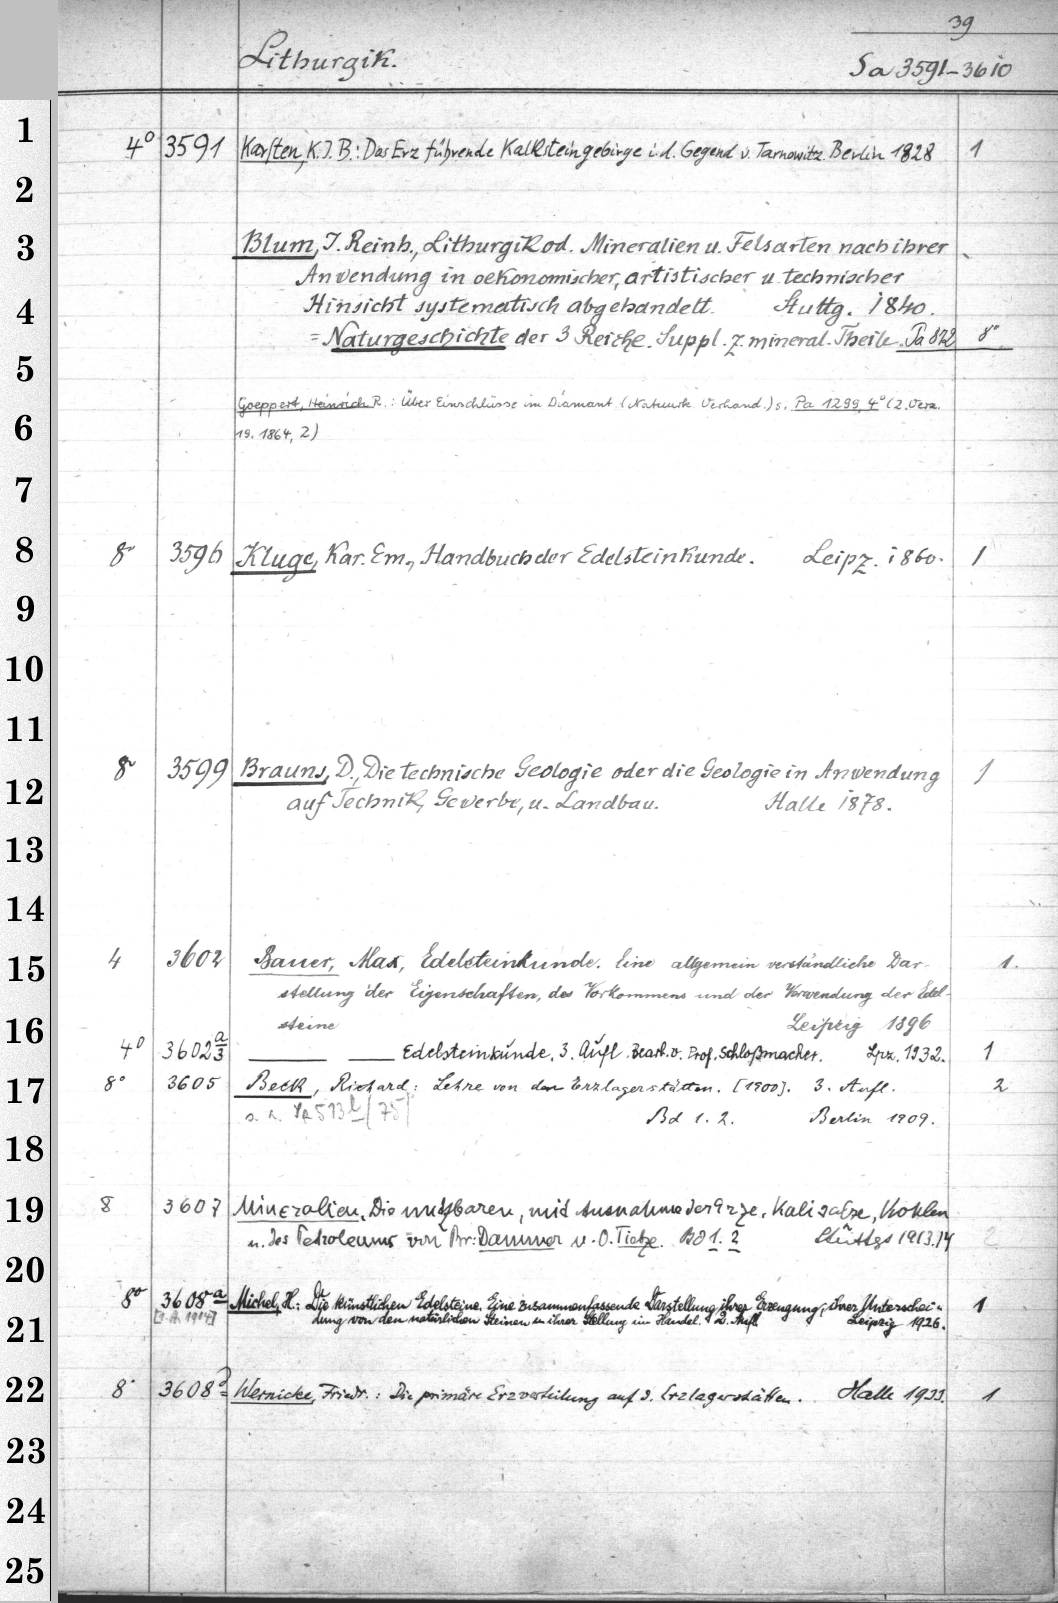 39
Lithurgik. Sa 3591-3610
1
4° 3591 Karsten, K. J. B.: Das Erz führende Kalksteingebirge i. d. Gegend v. Tarnowitz. Berlin 1828 1
2
3 Blum, J. Reinh., Lithurgik od. Mineralien u. Felsarten nach ihrer
Anwendung in oekonomischer, artistischer u. technischer
4 Hinsicht systematisch abgehandelt. Stuttg. 1840.
= Naturgeschichte der 3 Reiche. Suppl. z. mineral. Theile. Pa 822 8°
5
Goeppert, Heinrich R.: Über Einschlüsse im Diamant (Natuurk. Verhand.) s. Pa 1299, 4° (2. Verz.
6 19. 1864, 2)
7
8 8° 3596 Kluge, Kar. Em., Handbuch der Edelsteinkunde. Leipz. 1860. 1
9
10
11
8° 3599 Brauns, D., Die technische Geologie oder die Geologie in Anwendung 1
12 auf Technik, Gewerbe, u. Landbau. Halle 1878.
13
14
15 4 3602 Bauer, Max, Edelsteinkunde. Eine allgemein verständliche Dar-  1.
stellung der Eigenschaften, des Vorkommens und der Verwendung der Edel-
16 steine Leipzig 1896
4° 3602 a/3 — — Edelsteinkunde. 3. Aufl. Bearb. v. Prof. Schloßmacher. Lpz. 1932. 1
17 8° 3605 Beck, Richard: Lehre von den Erzlagerstätten. [1900]. 3. Aufl. 2
Bd 1. 2. Berlin 1909.
18
19 8 3607 Mineralien, Die nutzbaren, mit Ausnahme der Erze, Kalisalze, Kohlen
u. des Petroleums von Br: Dammer u. O. Tietze. Bd 1. 2 Stuttg 1913.14 2
20
8° 3608 a Michel, H.: Die künstlichen Edelsteine. Eine zusammenfassende Darstellung ihrer Erzeugung, ihrer Unterschei- 1
21 [1. A. 1914] dung von den natürlichen Steinen u. ihrer Stellung im Handel. 2. Aufl Leipzig 1926.
22 8° 3608 Wernicke, Friedr.: Die primäre Erzverteilung auf d. Erzlagerstätten. Halle 1933. 1
23
24
25